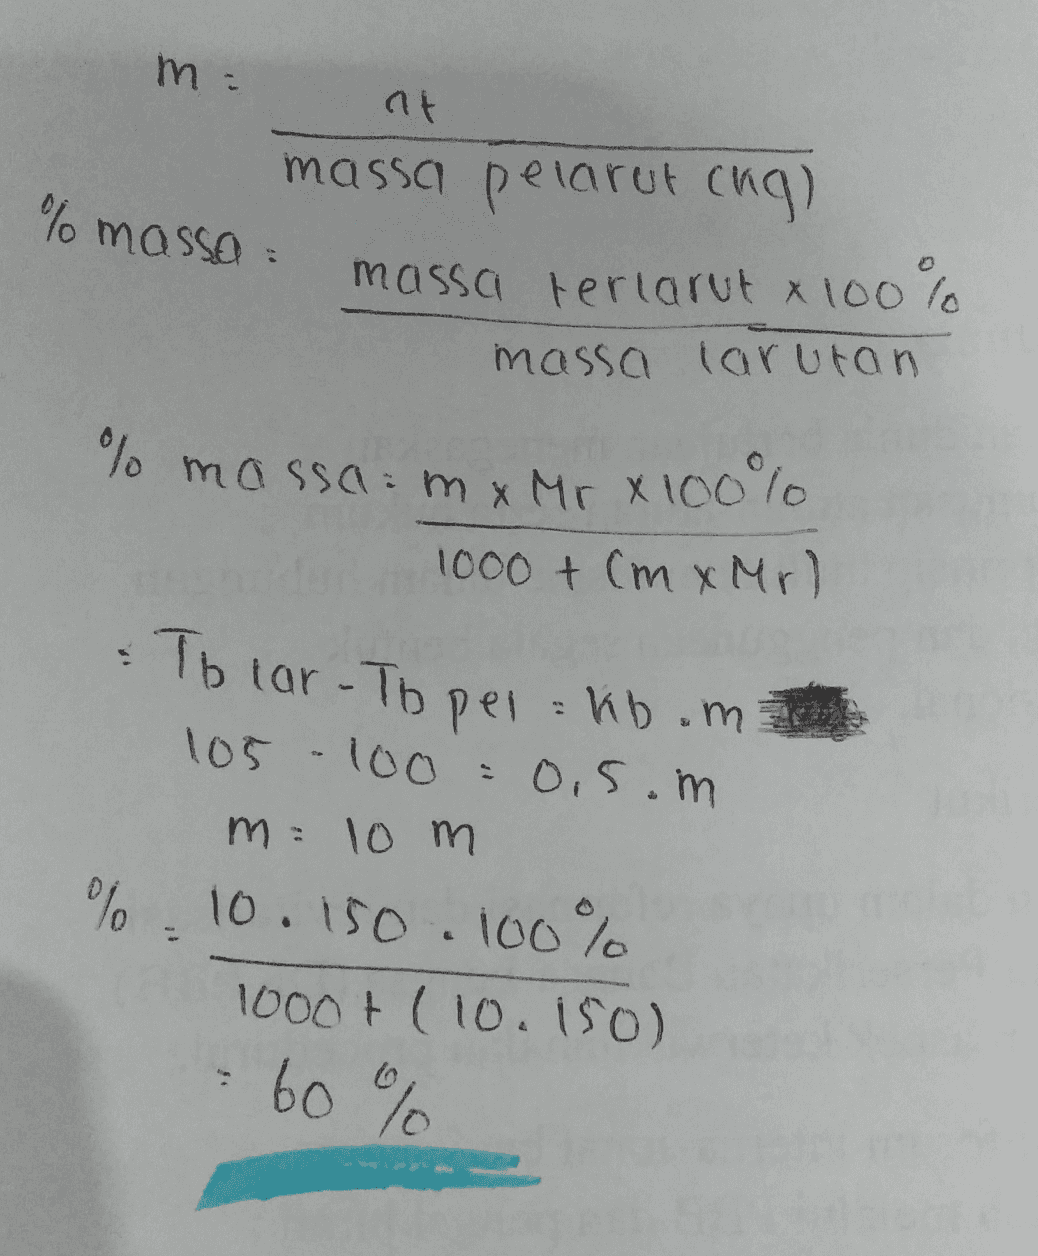 m =
nt
massa pelarut (kg)
% massa =
massa terlarut x 100 %
massa larutan
% massa = m x Mr x 100 %
1000 + (m x Mr)
= Tb lar - Tb pel = kb . m
105 - 100 = 0,5 . m
m = 10 m
% = 10 . 150 . 100 %
1000 + (10 . 150)
= 60 %